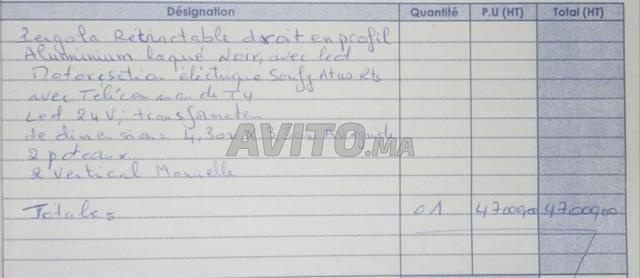 Désignation Quantité P.U (HT) Total (HT)
Pergola Rétractable droit en profil
Aluminium laqué Noir, avec led
Motorisation électrique Somfy Rts
avec Télécommande T4
Led 24V, transformateur
de dimension = 4,30
2 poteaux
2 Vertical Manuelle
Totale = 01 47000,00 47000,00
AVITO.MA